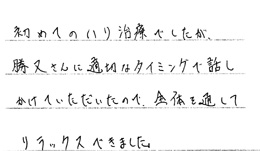 初めてのハリ治療でしたが、
勝又さんに適切なタイミングで話し
かけていただいたので、全体を通して
リラックスできました。